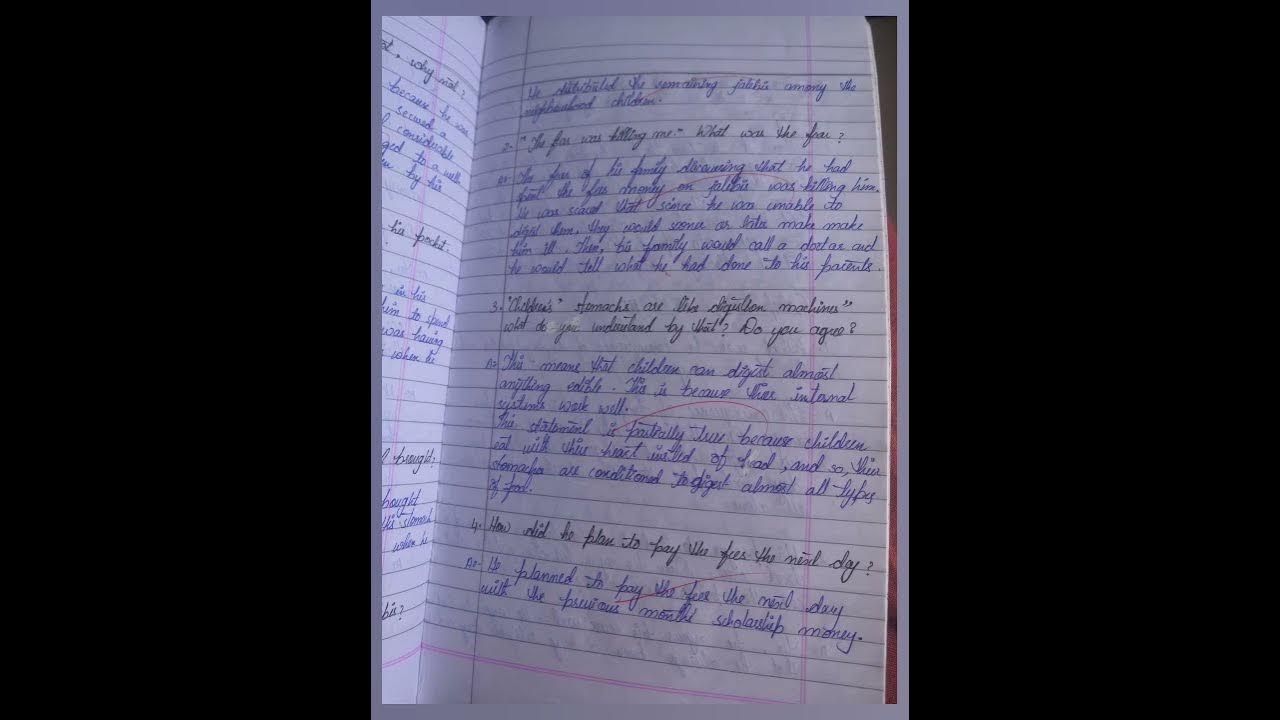 ot, why not?
because he was
secured a
considerable
ged to a well
by his
his pocket
in his
him to spend
was having
when he
brought?
bought
his stomach
when he
bis?
He distributed the remaining jalebis among the
neighbourhood children.
2. "The fear was killing me." What was the fear?
As- The fear of his family discovering that he had
spent the fees money on jalebis was killing him.
He was scared that since he was unable to
digest them, they would sooner or later make make
him ill. Then, his family would call a doctor and
he would tell what he had done to his parents.
3. "Children's" stomachs are like digestion machines"
what do you understand by that? Do you agree?
As- This means that children can digest almost
anything edible. This is because thier internal
systems work well.
This statement is partially true because children
eat with thier heart insted of head, and so, thier
stomachs are conditioned to digest almost all types
of food.
4. How did he plan to pay the fees the next day?
As- He planned to pay the fees the next day
with the previous months scholarship money.